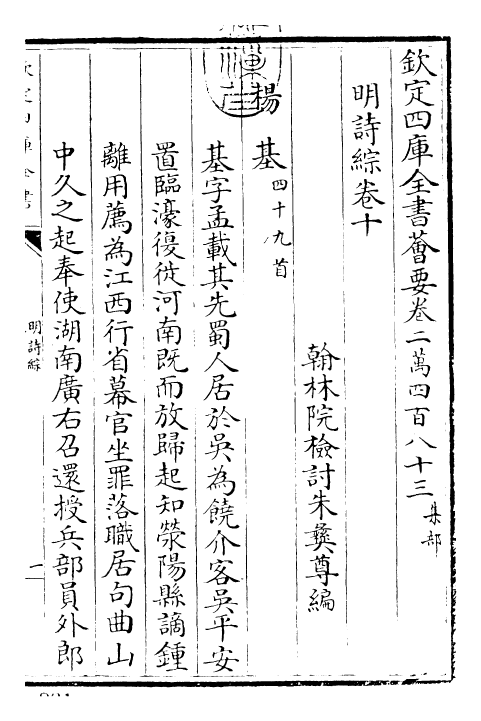 欽定四庫全書薈要卷二萬四百八十三集部
明詩綜卷十
翰林院檢討朱彝尊編
楊基四十九首
基字孟載其先蜀人居於吳為饒介客吳平安
置臨濠復徙河南既而放歸起知滎陽縣謫鍾
離用薦為江西行省幕官坐罪落職居句曲山
中久之起奉使湖南廣右召還授兵部員外郎
欽定四庫全書
明詩綜